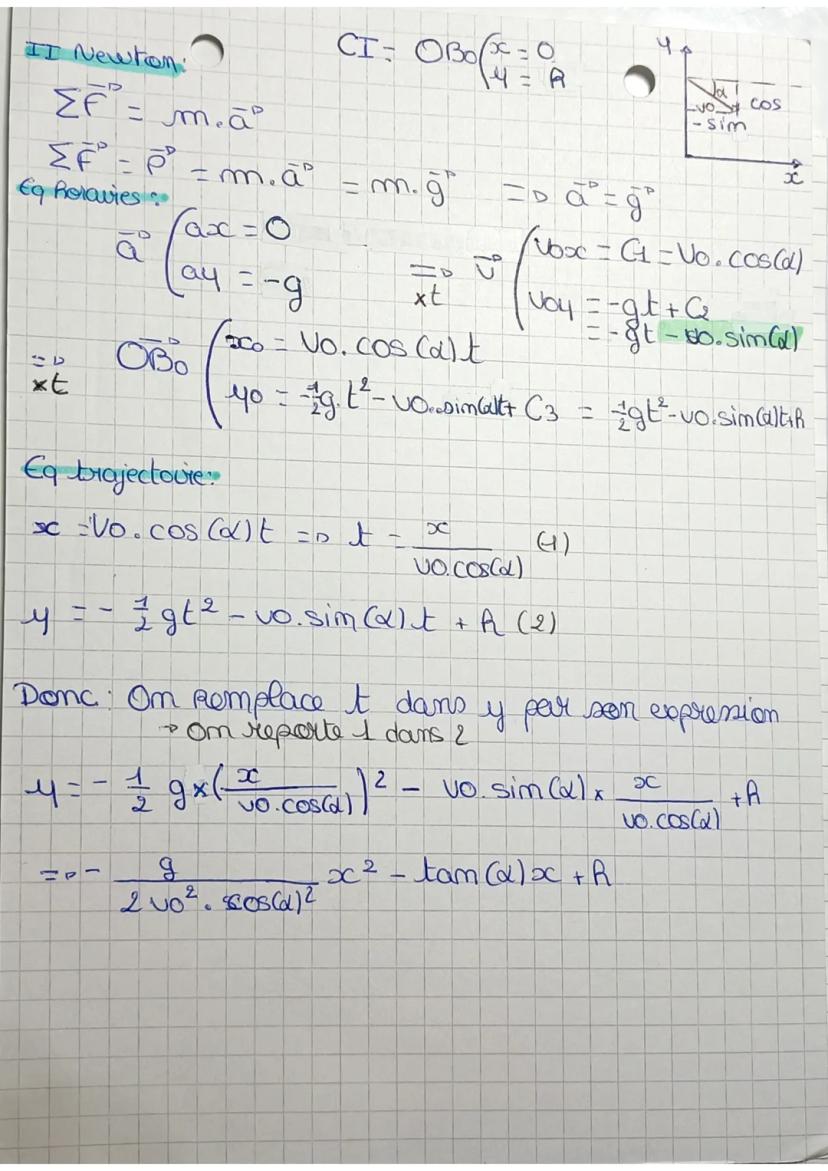 II Newton:
CI = OB₀ ( x = 0
y = h
y
α
v0
cos
-sin
x
ΣF⃗ = m.a⃗
ΣF⃗ = P⃗ = m.a⃗ = m.g⃗ => a⃗ = g⃗
Eq horaires:
a⃗ ( ax = 0
ay = -g
=> xt
v⃗ ( v0x = C1 = v0.cos(α)
v0y = -gt + C2
= -gt - v0.sin(α)
=> xt
OB⃗₀ ( x0 = v0.cos(α)t
y0 = -½g.t² - v0.sin(α)t + C3 = -½gt² - v0.sin(α)t+h
Eq trajectoire:
x = v0.cos(α)t => t = x / v0.cos(α) (1)
y = - ½ gt² - v0.sin(α)t + h (2)
Donc: On remplace t dans y par son expression
→ on reporte 1 dans 2
y = - ½ g×(x / v0.cos(α))² - v0.sin(α) × x / v0.cos(α) + h
=> - g / 2v0².cos(α)² x² - tan(α)x + h